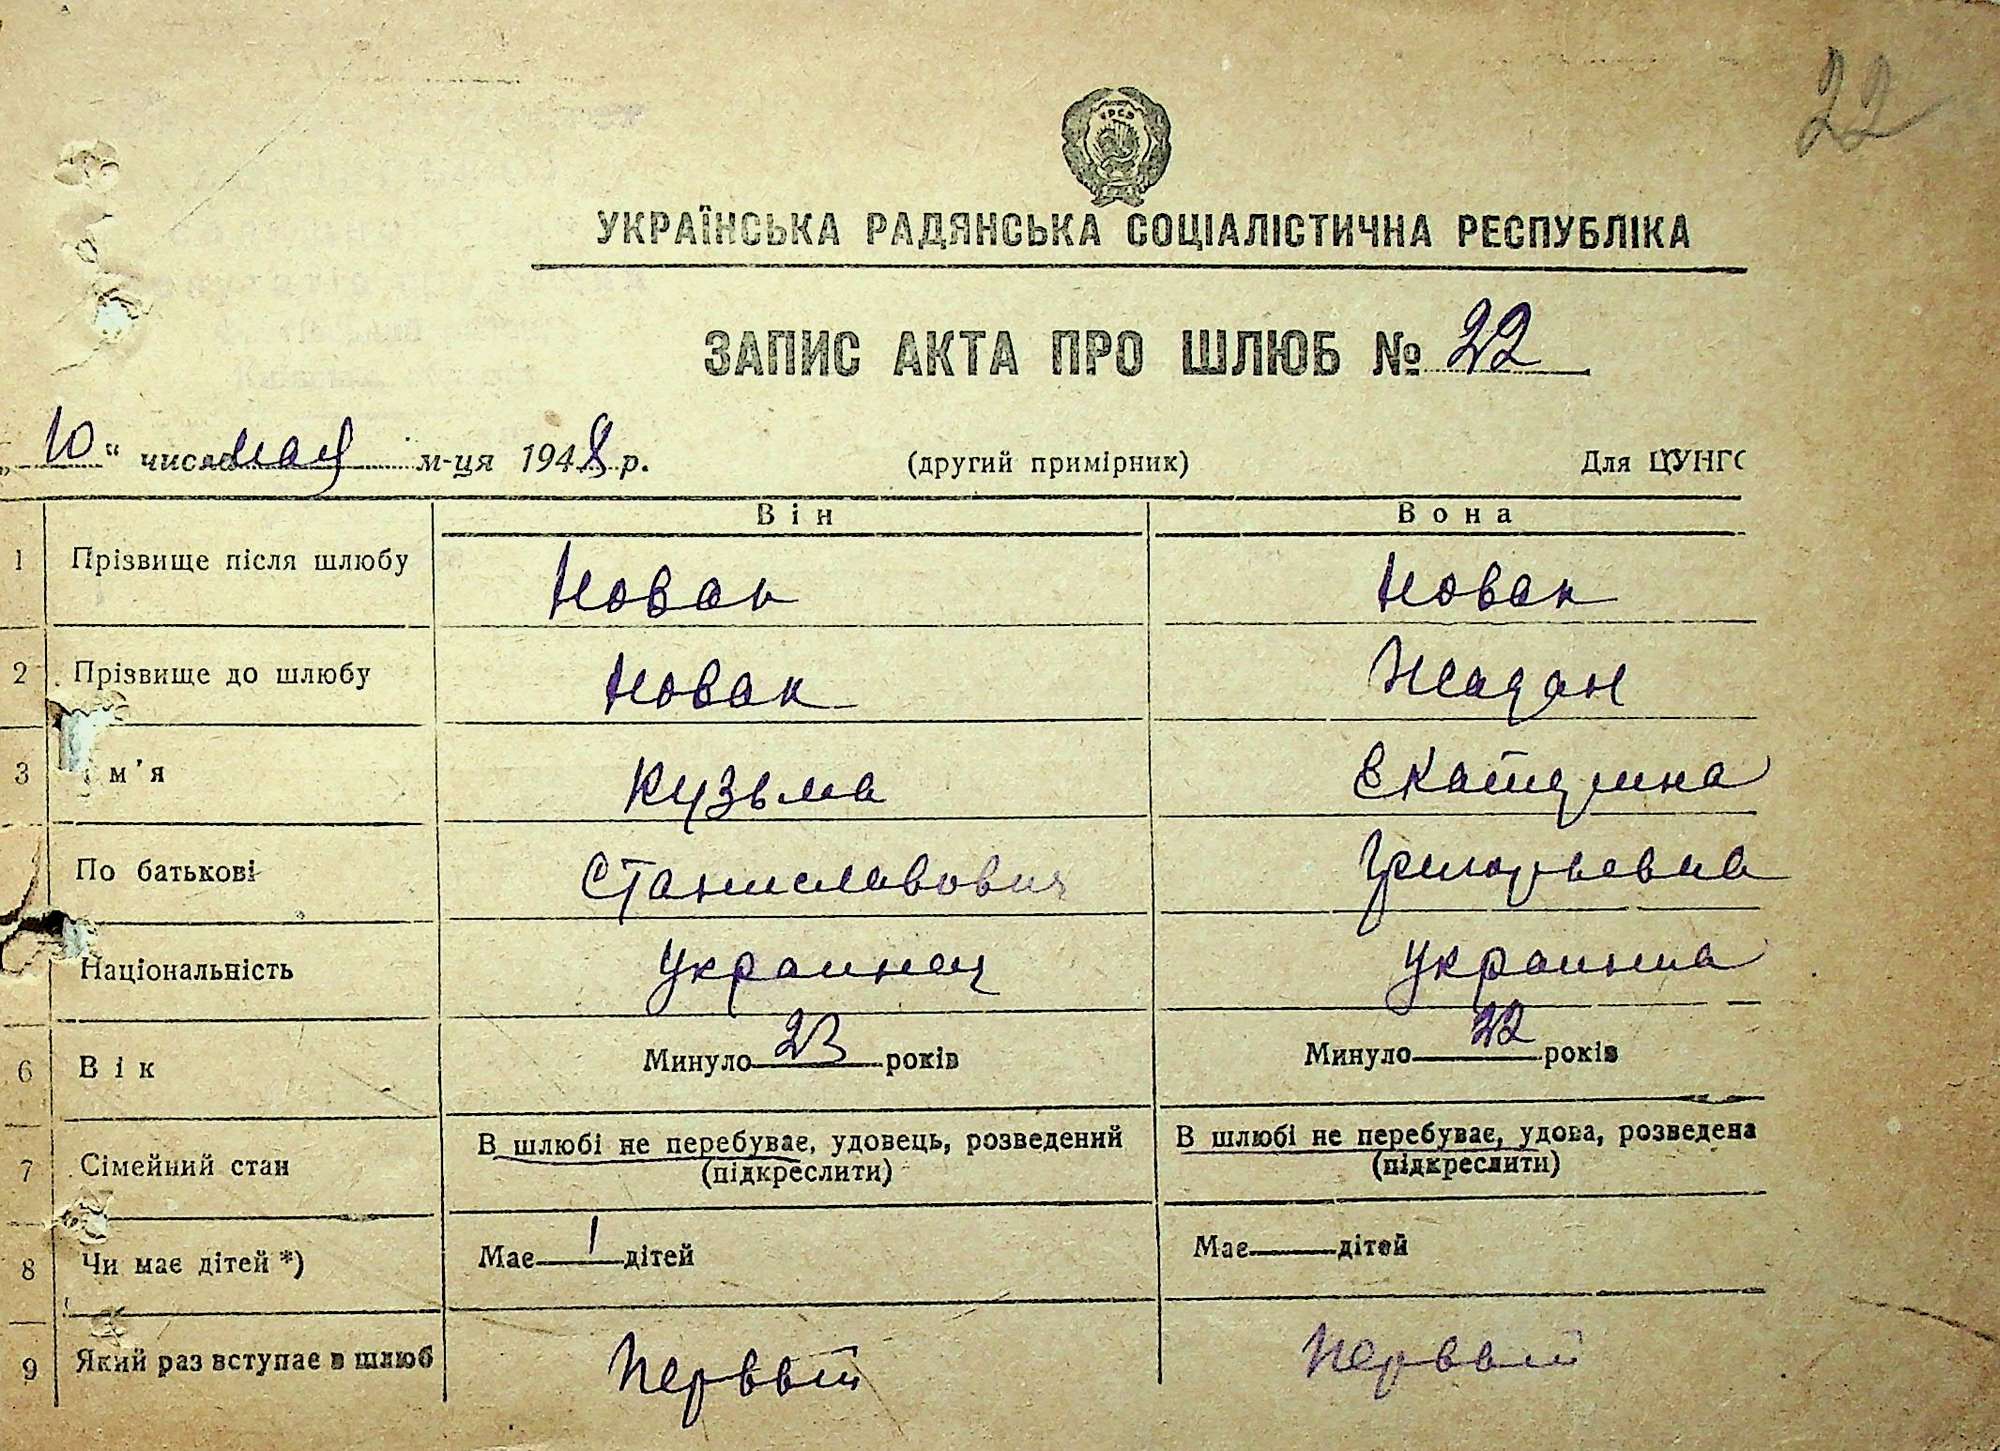 22
УРСР
УКРАЇНСЬКА РАДЯНСЬКА СОЦІАЛІСТИЧНА РЕСПУБЛІКА
ЗАПИС АКТА ПРО ШЛЮБ № 22
„10“ числа мая м-ця 1948 р. (другий примірник) Для ЦУНГО
Він Вона
1 Прізвище після шлюбу Новак Новак
2 Прізвище до шлюбу Новак Жадан
3 м'я Кузьма Екатерина
По батькові Станиславович Григорьевна
Національність украинец украинка
6 Вік Минуло 23 років Минуло 22 років
7 Сімейний стан В шлюбі не перебуває, удовець, розведений (підкреслити) В шлюбі не перебуває, удова, розведена (підкреслити)
8 Чи має дітей *) Має 1 дітей Має дітей
9 Який раз вступає в шлюб Первый Первый